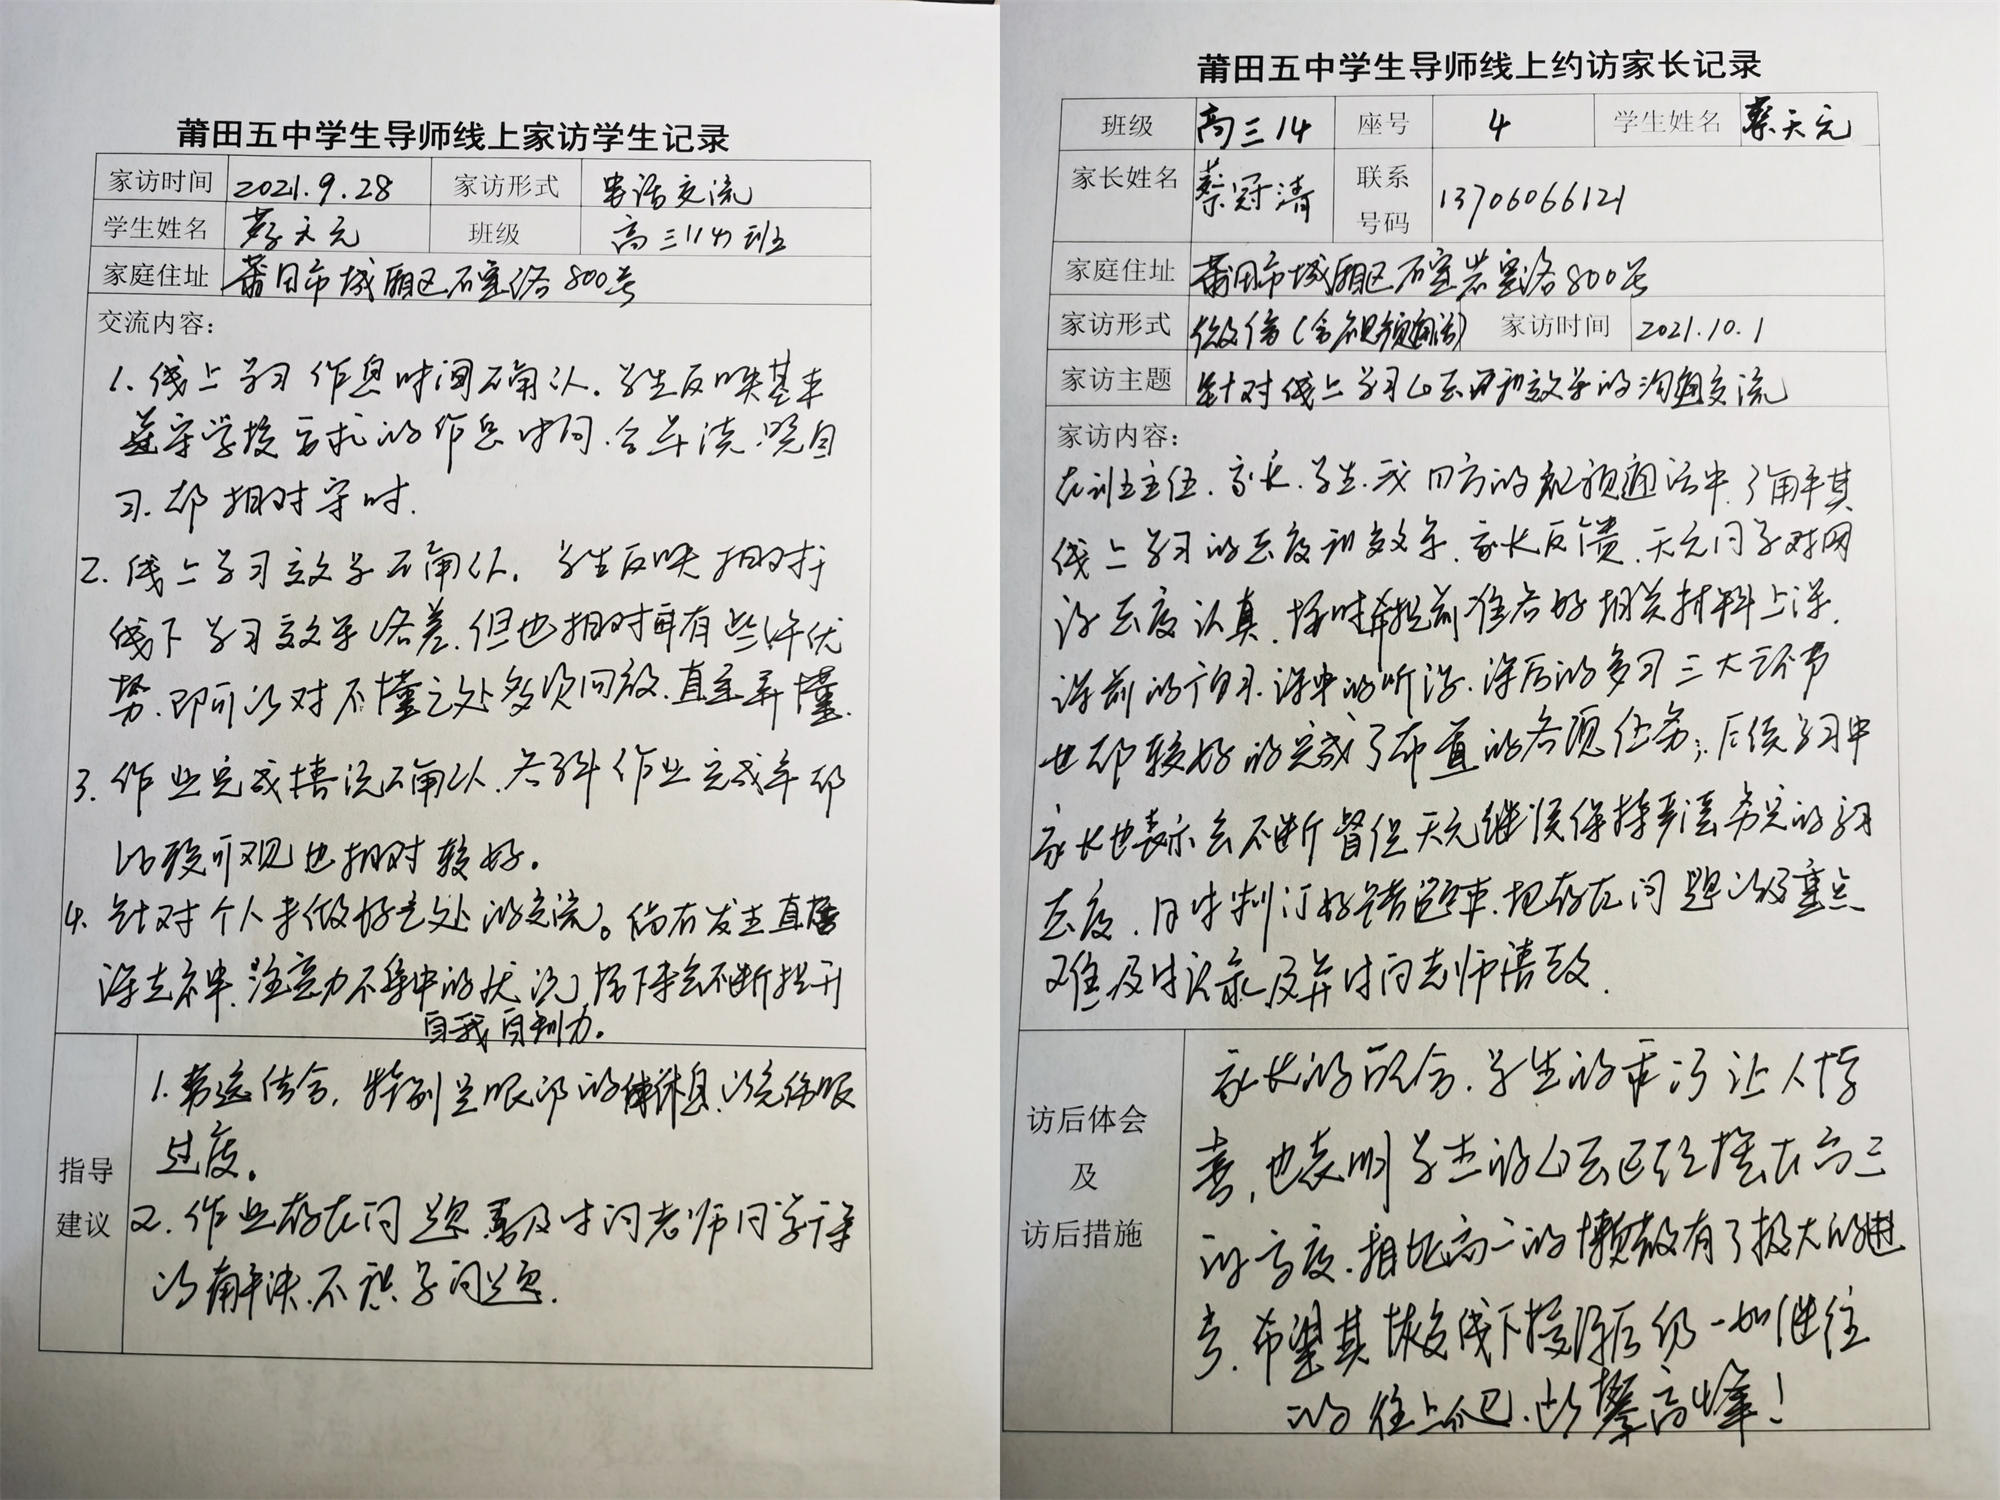 莆田五中学生导师线上家访学生记录
家访时间 2021.9.28 家访形式 电话交流
学生姓名 蔡天元 班级 高三(14)班
家庭住址 莆田市城厢区石室路800号
交流内容：
1. 线上学习作息时间确认. 学生反映基本
遵守学校安排的作息时间.含早读.晚自
习.都相对守时.
2. 线上学习效率确认. 学生反映相对于
线下学习效率略差.但也相对有些许优
势.即可以对不懂之处多次回放.直至弄懂.
3. 作业完成情况确认.各科作业完成率都
比较可观也相对较好。
4. 针对个人未做好之处的交流。偶有发生直播
课走神.注意力不集中的状况,接下来会不断提升
自我自制力。
指导
建议
1. 劳逸结合, 特别是眼部的休息.以免伤眼
过度。
2. 作业存在问题要及时问老师同学
的解决.不积学问题.
莆田五中学生导师线上约访家长记录
班级 高三14 座号 4 学生姓名 蔡天元
家长姓名 蔡冠清 联系
号码 13706066121
家庭住址 莆田市城厢区石室岩室路800号
家访形式 微信(含视频通话) 家访时间 2021.10.1
家访主题 针对线上学习心态和效率的沟通交流
家访内容：
在班主任.家长.学生.我四方的视频通话中.了解其
线上学习的态度和效率.家长反馈.天元同学对网
课态度认真.按时并提前准备好相关材料上课.
课前的预习.课中的听课.课后的复习三大环节
也都较好的完成了布置的各项任务；后续学习中
家长也表示会不断督促天元继续保持严谨务实的学习
态度.同时制订好错题本.把存在问题以及重点
难及时记录及并时向老师请教.
访后体会
及
访后措施
家长的配合.学生的乖巧让人惊
喜,也表明学生的心态已经摆在高三
的高度.相比高二的懒散有了极大的进
步.希望其恢复线下授课后仍一如继往
的往上爬.勇攀高峰！